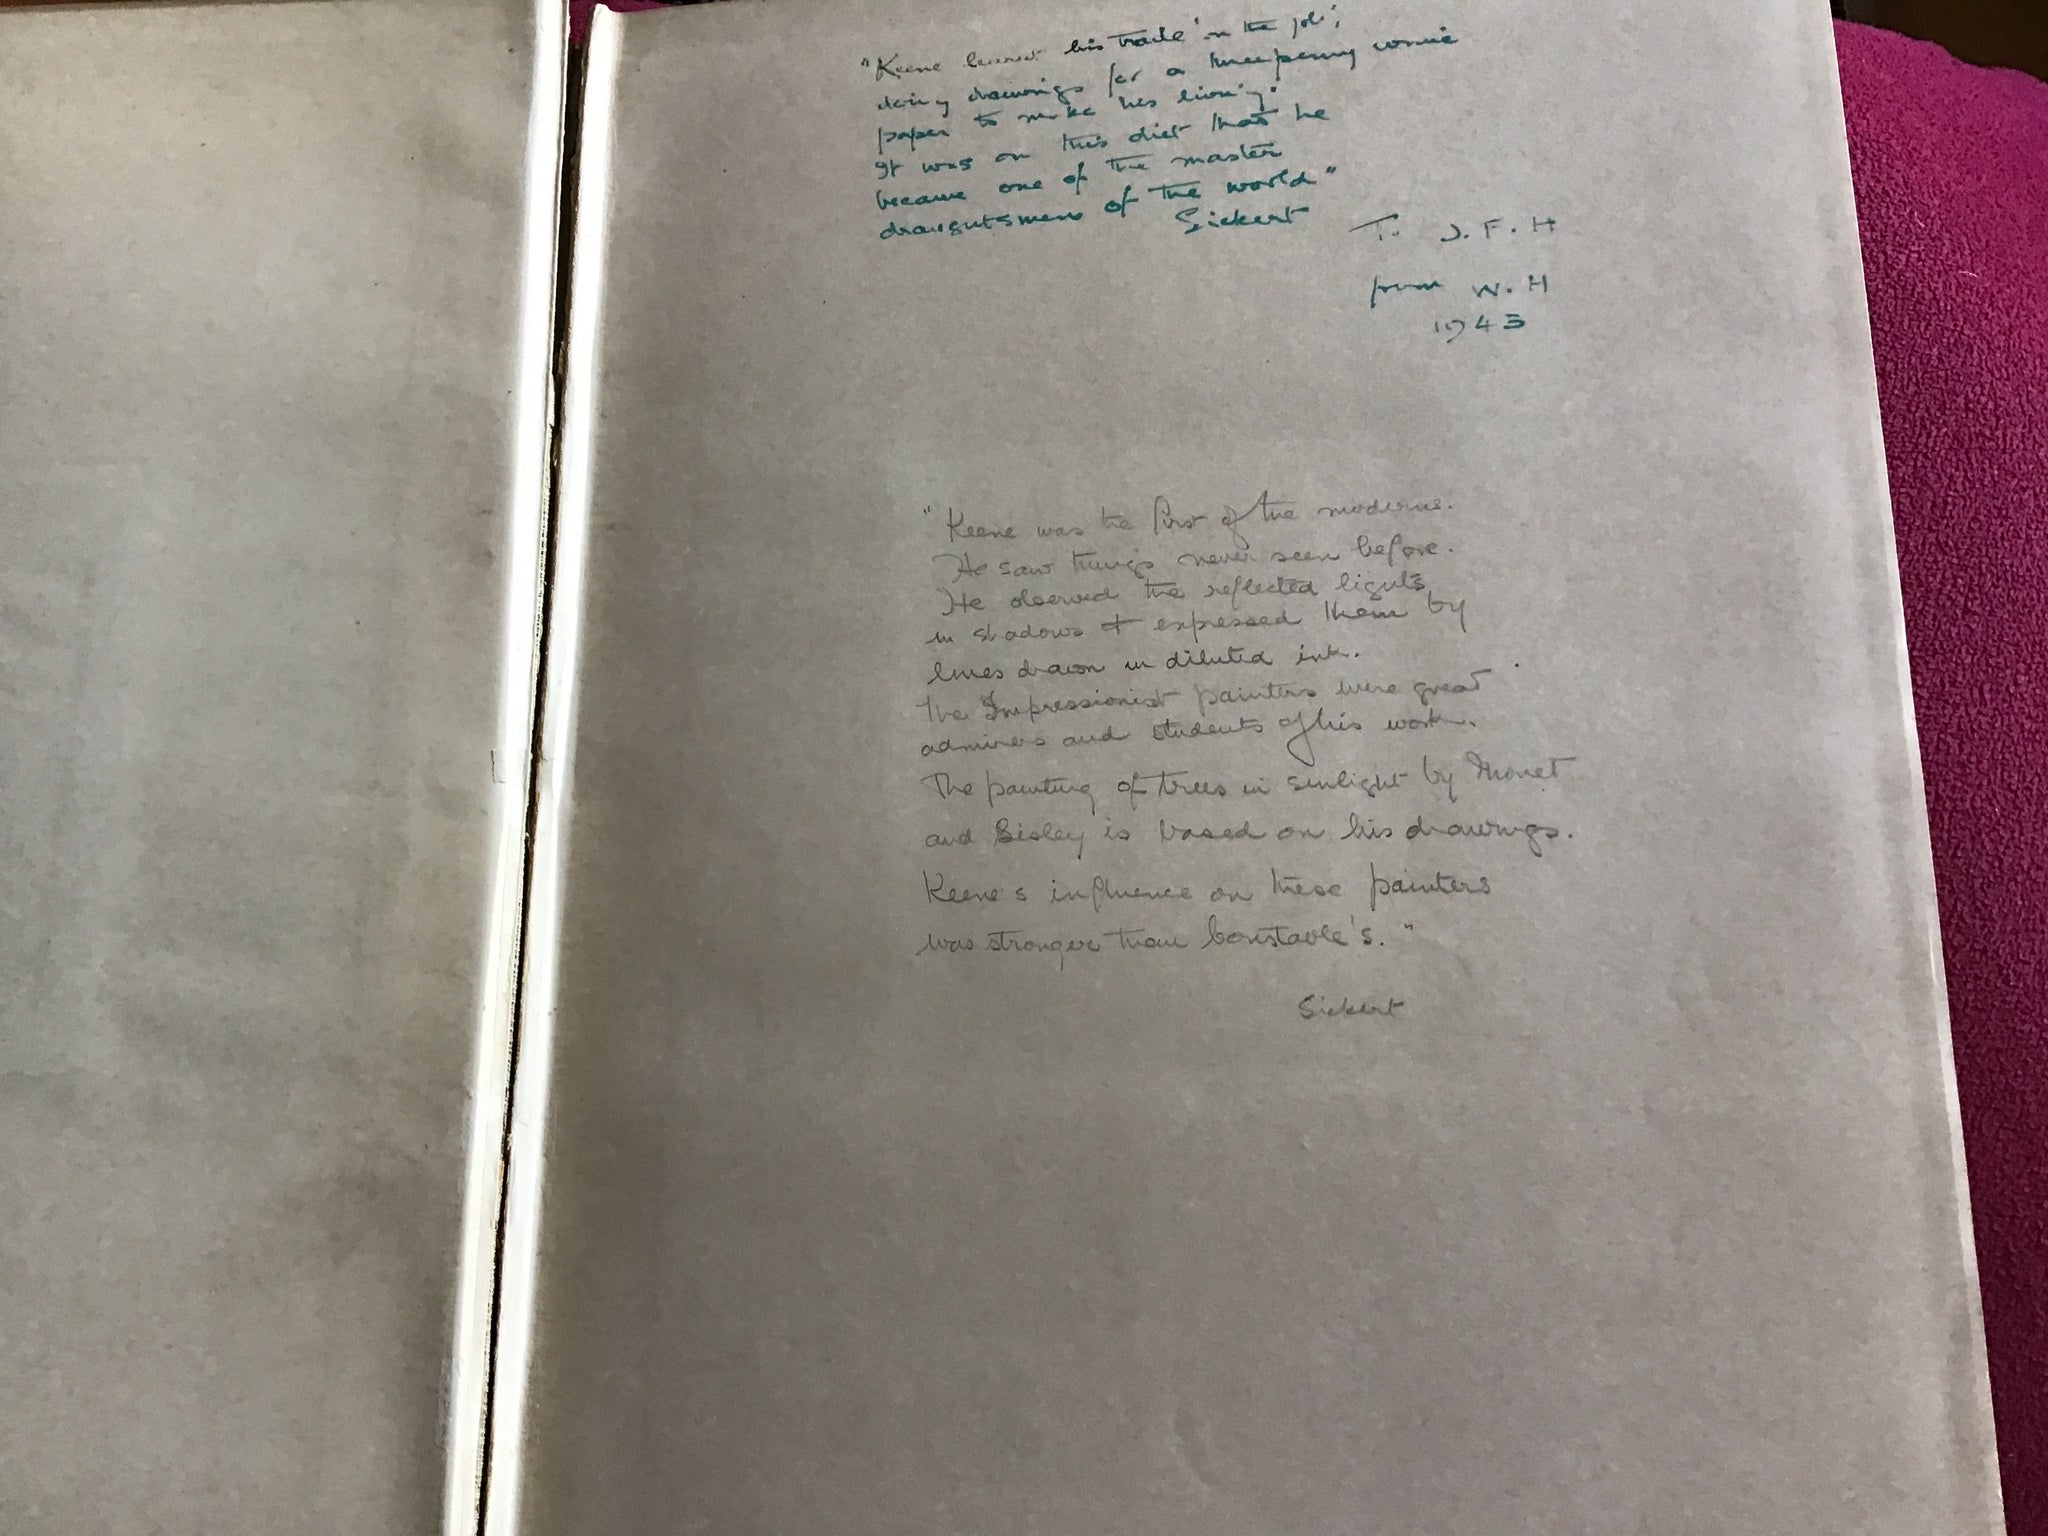 "Keene learnt his trade 'on the job',
doing drawings for a threepenny comic
paper to make his living.
It was on this diet that he
became one of the master
draughtsmen of the world"
Sickert
To J.F.H
from W.H
1943
"Keene was the first of the moderns.
He saw things never seen before.
He observed the reflected lights
in shadows & expressed them by
lines drawn in diluted ink.
The Impressionist painters were great
admirers and students of his work.
The painting of trees in sunlight by Monet
and Sisley is based on his drawings.
Keene's influence on these painters
was stronger than Constable's."
Sickert